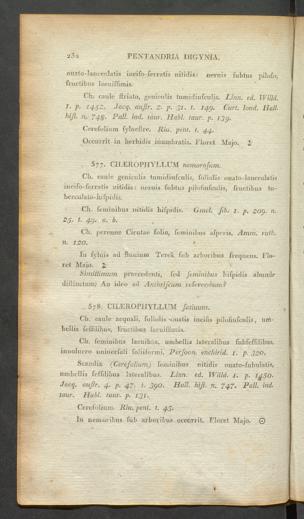 232 PENTANDRIA DIGYNIA.
ouato-lanceolatis inciso-serratis nitidis: neruis subtus pilosis,
fructibus laeuissimis.
Ch. caule striato, geniculis tumidiusculis. Linn. ed. Willd.
1. p. 1452. Jacq. austr. 2. p. 31. t. 149. Curt. lond. Hall.
hist. n. 748. Pall. ind. taur. Habl. taur. p. 139.
Cerefolium sylvestre. Riu. pent. t. 44.
Occurrit in herbidis inumbratis. Floret Majo. ♃
577. CHEROPHYLLUM nemorosum.
Ch. caule geniculis tumidiusculis, foliolis ouato-lanceolatis
inciso-serratis nitidis: neruis subtus pilosiusculis, fructibus tu-
berculato-hispidis.
Ch. seminibus nitidis hispidis. Gmel. sib. 1. p. 209. n.
25. t. 49. a. b.
Ch. perenne Cicutae folio, seminibus asperis. Amm. ruth.
n. 120.
In syluis ad fluuium Terek sub arboribus frequens. Flo-
ret Majo. ♃
Simillimum praecedenti, sed seminibus hispidis abunde
distinctum; An ideo ad Anthriscum referendum?
578. CHEROPHYLLUM sativum.
Ch. caule aequali, foliolis ouatis inciso pilosiusculis, um-
bellis sessilibus, fructibus laeuissimis.
Ch. seminibus laeuibus, umbellis lateralibus subsessilibus,
involucro uniuersali foliiformi. Persoon. enchirid. 1. p. 320.
Scandix (Cerefolium) seminibus nitidis ouato-subulatis,
umbellis sessilibus lateralibus. Linn. ed. Willd. 1. p. 1450.
Jacq. austr. 4. p. 47. t. 390. Hall. hist. n. 747. Pall. ind.
taur. Habl. taur. p. 131.
Cerefolium. Riu. pent. t. 43.
In nemoribus sub arboribus occurrit. Floret Majo. ☉